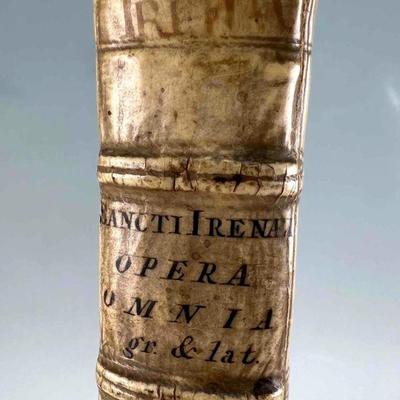 SANCTI IRENÆI
OPERA
OMNIA
gr. & lat.